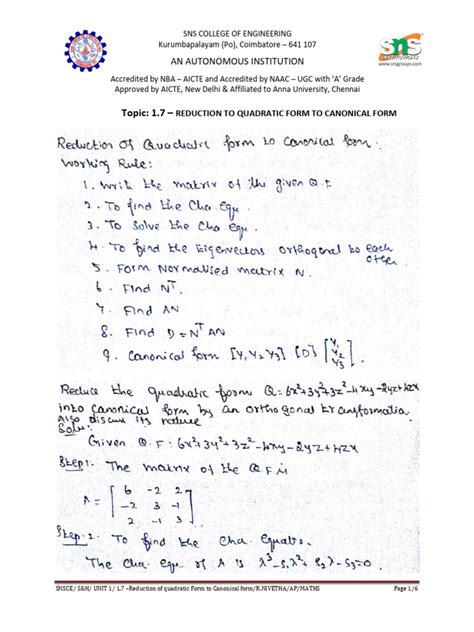 SNS COLLEGE OF ENGINEERING
Kurumbapalayam (Po), Coimbatore – 641 107
AN AUTONOMOUS INSTITUTION
Accredited by NBA – AICTE and Accredited by NAAC – UGC with ‘A’ Grade
Approved by AICTE, New Delhi & Affiliated to Anna University, Chennai
SNS
INSTITUTIONS
www.snsgroups.com
Topic: 1.7 – REDUCTION TO QUADRATIC FORM TO CANONICAL FORM
Reduction Of Quadratic form to Canonical form.
Working Rule:
1. Write the matrix of the given Q.F.
2. To find the Cha. Equ.
3. To Solve the Cha. Equ.
4. To find the Eigenvectors orthogonal to each other.
5. Form Normalised matrix N.
6. Find Nᵀ
7. Find AN
8. Find D = Nᵀ AN
9. Canonical form [Y₁ Y₂ Y₃] [D] [Y₁ Y₂ Y₃]
Reduce the quadratic form Q = 6x²+3y²+3z²-4xy-2yz+4zx
into canonical form by an orthogonal transformation
Also discuss its nature
Soln:
Given Q.F: 6x²+3y²+3z²-4xy-2yz+4zx
Step 1: The matrix of the QF is
A = [ 6 -2 2
-2 3 -1
2 -1 3 ]
Step-2: To find the Cha. Equatn.
The Cha. Equ of A is λ³-S₁λ²+S₂λ-S₃=0
SNSCE/ S&H/ UNIT 1/ 1.7 –Reduction of quadratic Form to Canonical form/R.NIVETHA/AP/MATHS Page 1/6